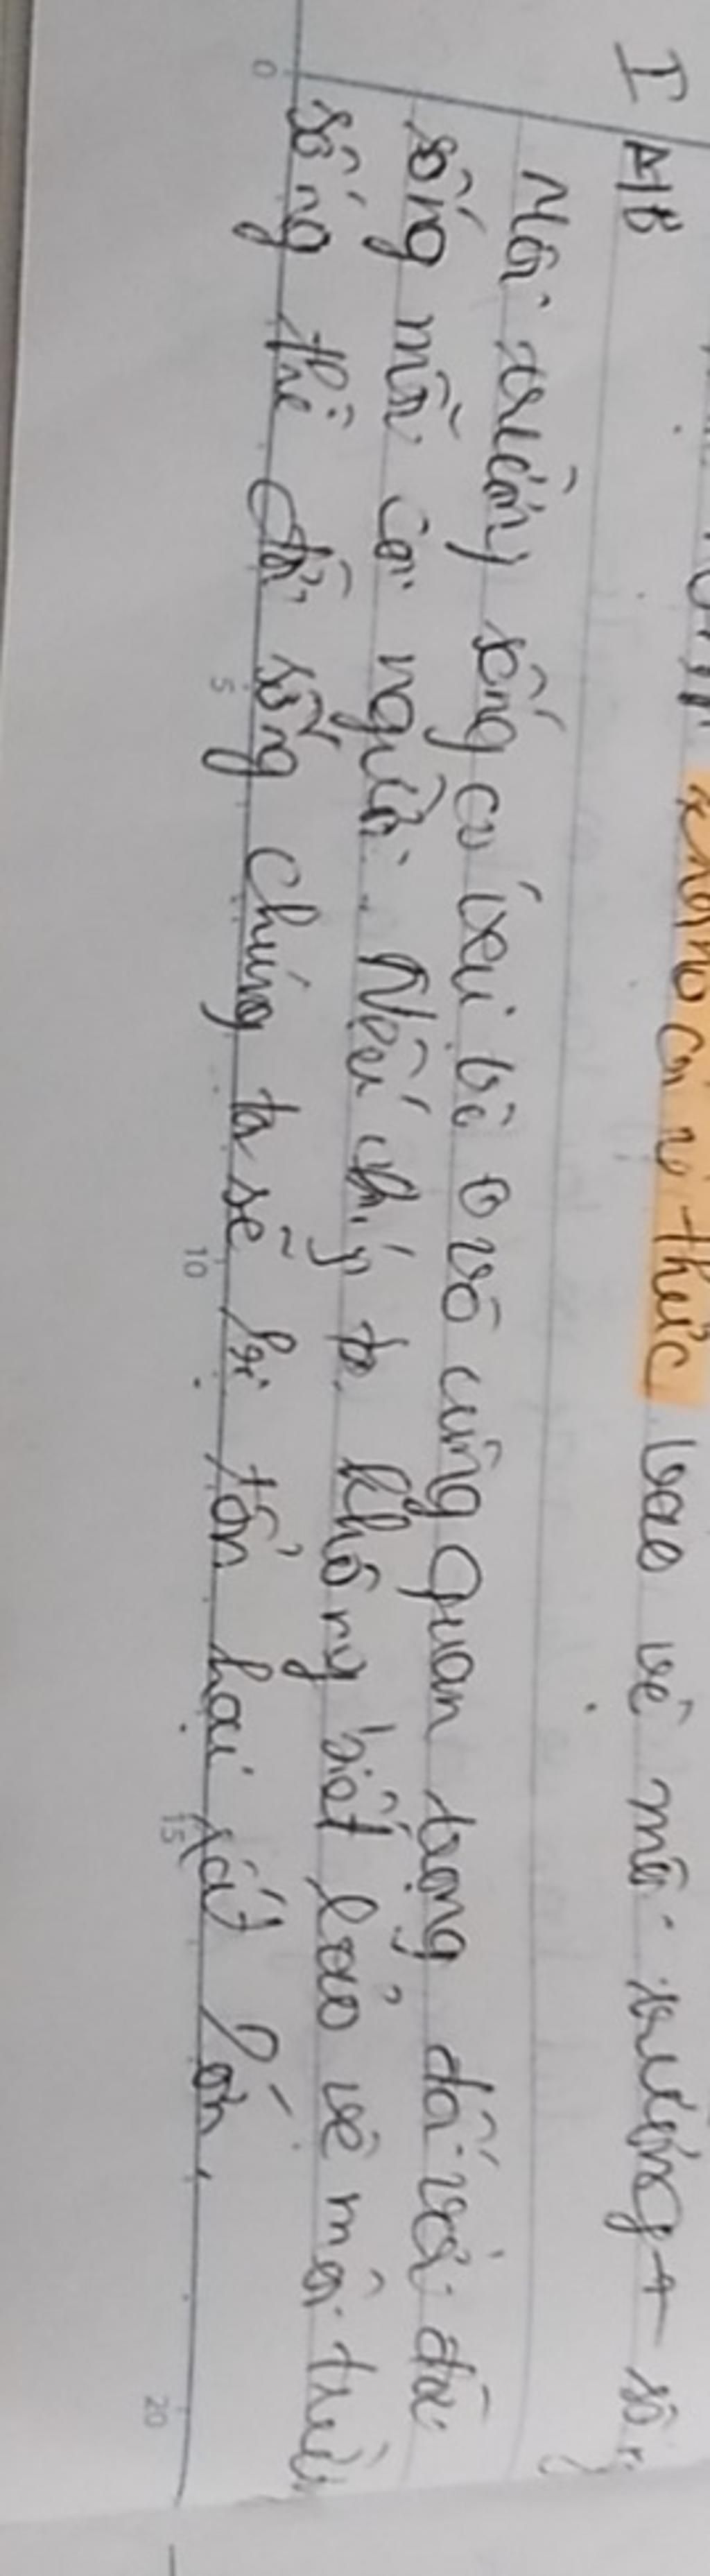 I
A/B
không có ý thức bảo vệ môi trường sống
Môi trường sống có vai trò vô cùng quan trọng đối với đời
sống mỗi con người. Nếu chúng ta không biết bảo vệ môi trườ
sống thì đời sống chúng ta sẽ bị tổn hại rất lớn.
0 5 10 15 20